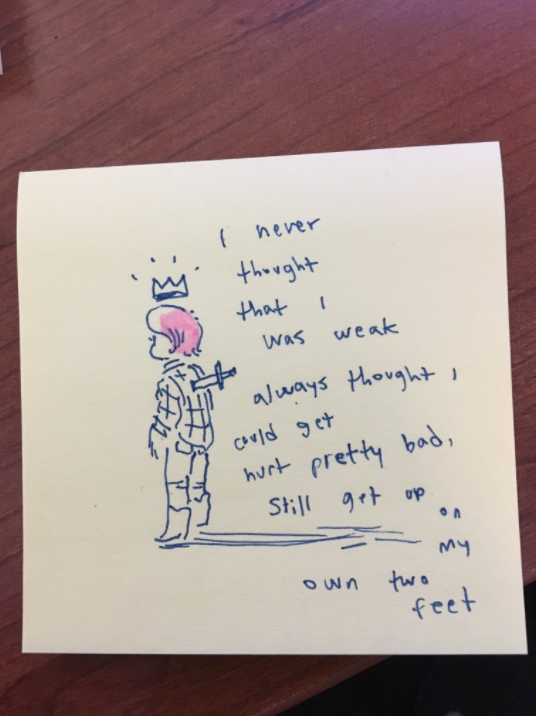 I never
thought
that I
was weak
always thought I
could get
hurt pretty bad,
Still get up on
my
own two
feet